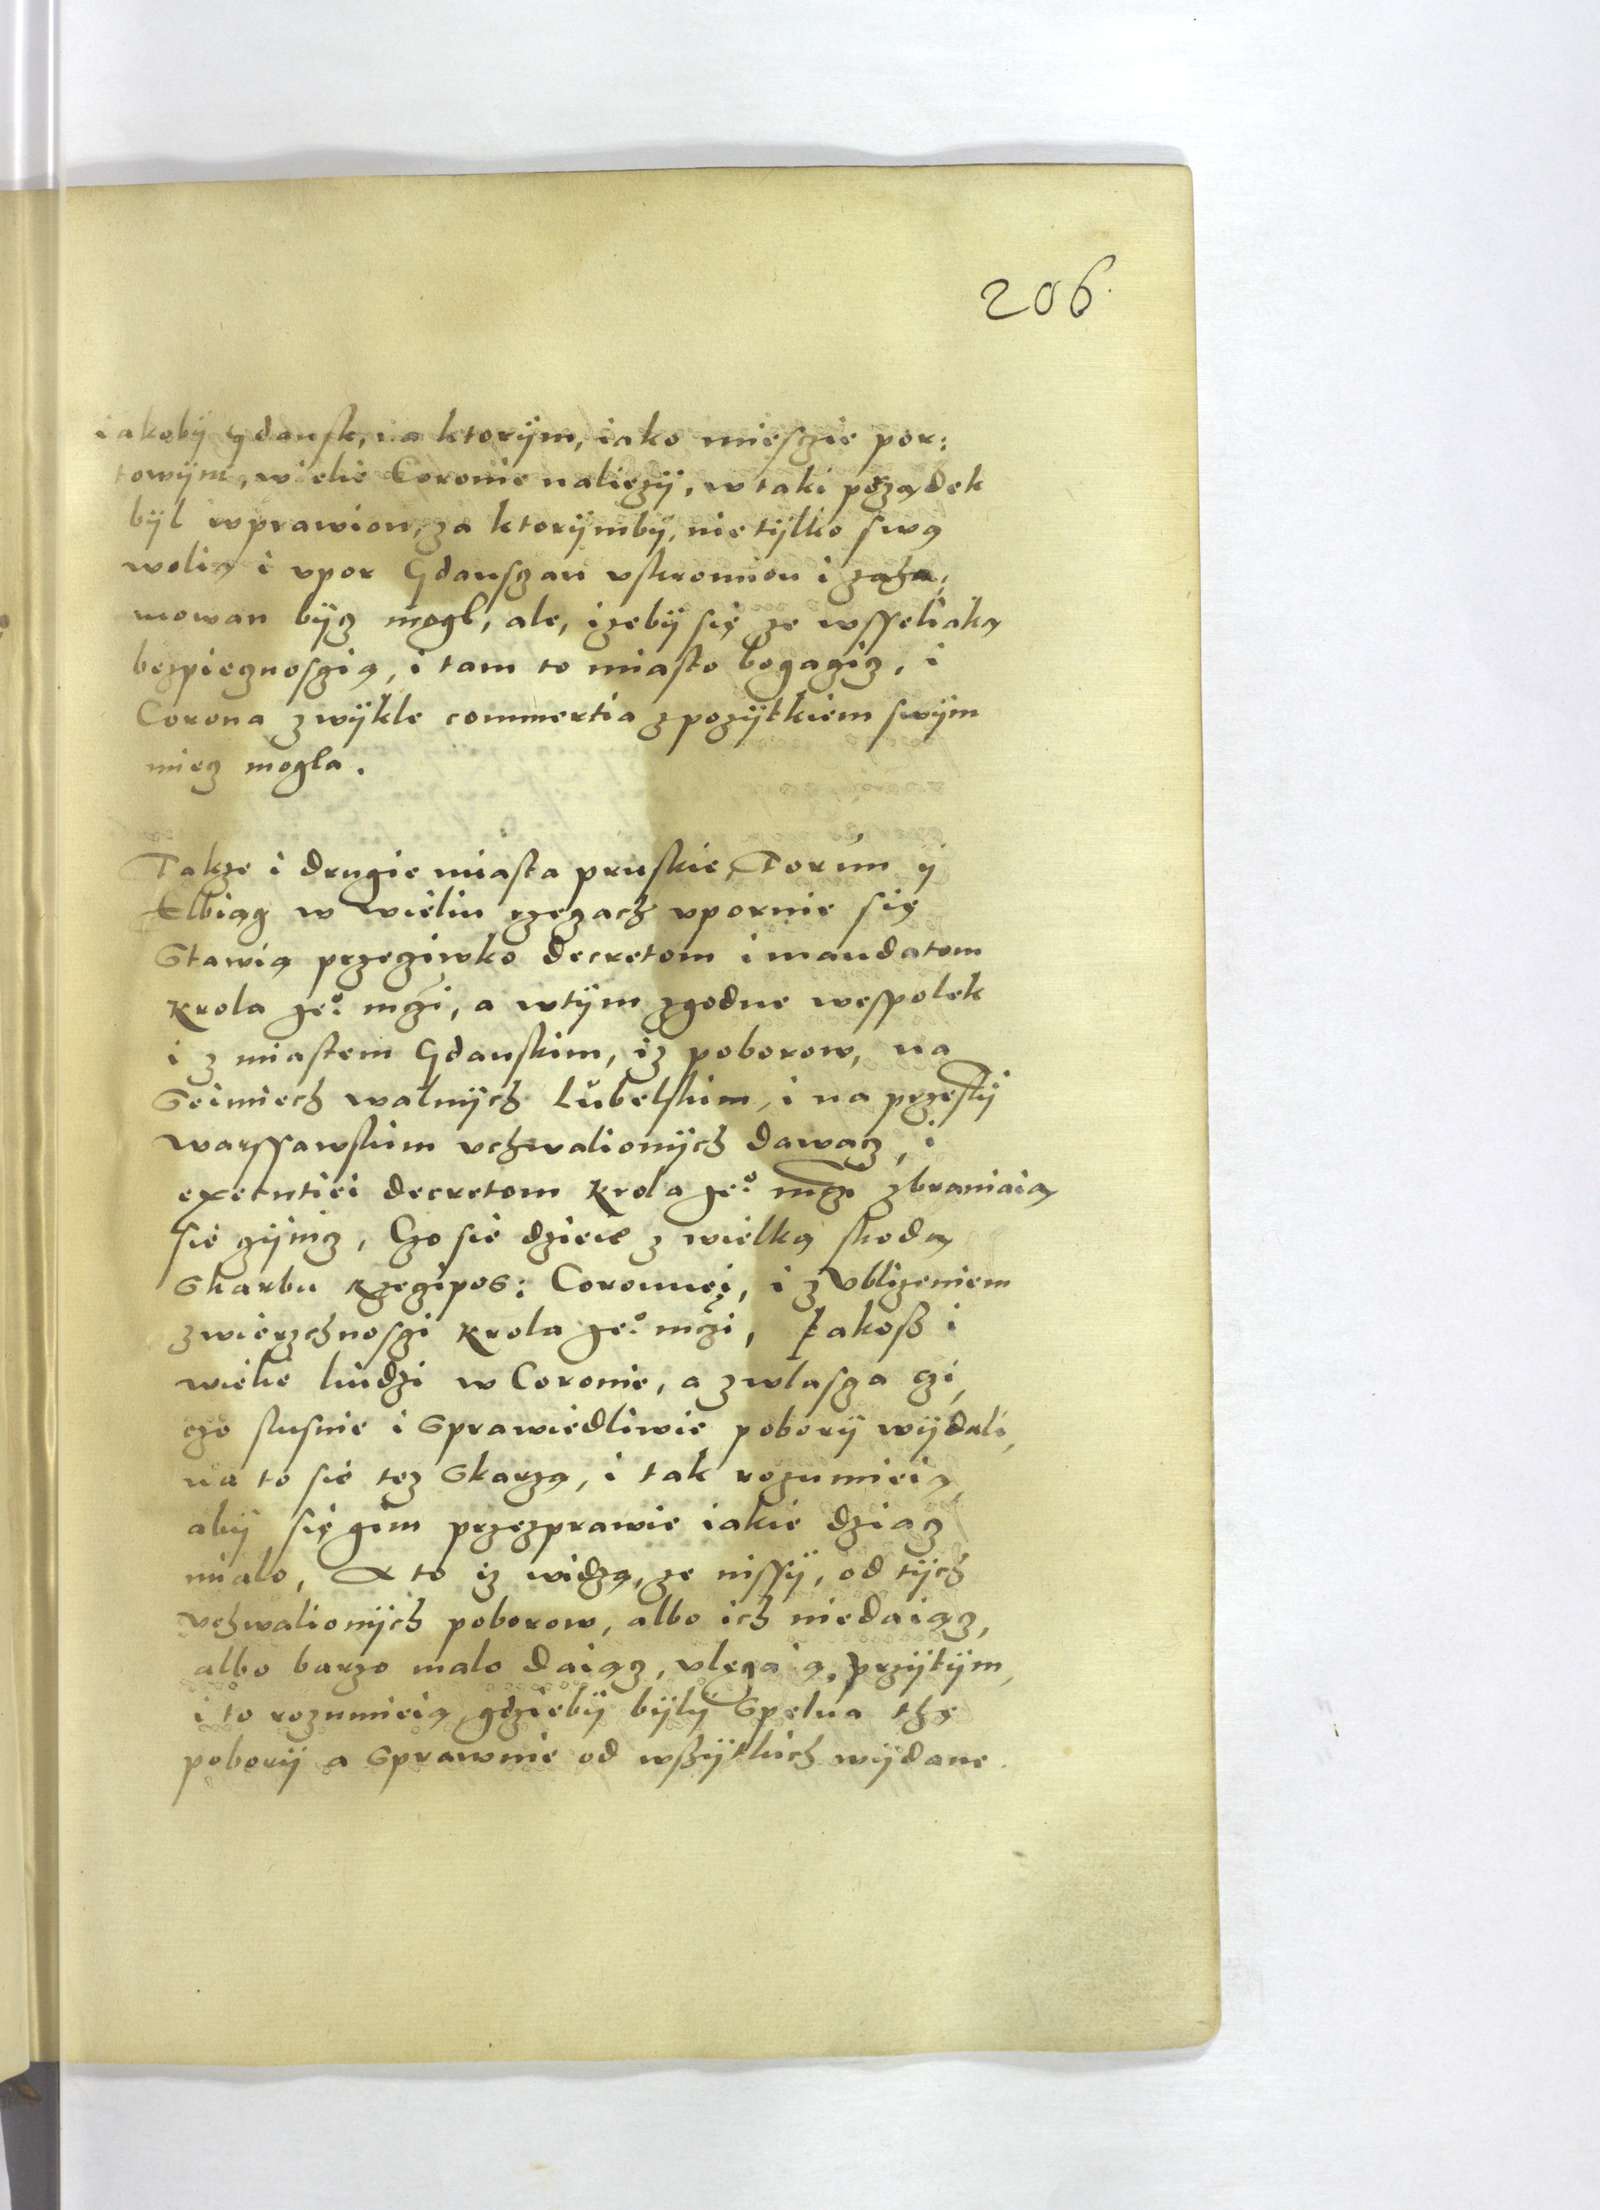 206.
iakobÿ Gdansk, na ktorÿm, iako miesczie por:
towÿm, wiele Coronie naliezÿ, w taki pozządek
bÿl wprawion, za ktorÿmbÿ, nie tÿlko swą
wolią i vpor Gdansczan vskromion i zaha,
mowan bÿcz mogl, ale, izebÿ się ze wsseliaką
bezpiecznosczią, i tam to miasto bogaczicz, i
Corona zwÿkle commertia z pozÿtkiem swÿm
miecz mogla.
Takze i drugie miasta pruskie, Torun ÿ
Elbiąg w wieliu rzeczach vpornie się
Stawią przeciwko decretom i mandatom
Krola Je° mczi, a wtÿm zgodne wespolek
i z miastem Gdanskim, iz poborow, na
Seimiech walnÿch Lubelskim, i na przeslÿ
warssawskim vchwalionÿch dawacz, i
executiei decretom Krola Je° mczi zbraniaią
się czÿnicz, Czo się dzieie z wielką skodą
Skarbu Rzeczipos: Coronnei, i z vblizeniem
zwierzchnosczi Krola Je° mczi, Jakoß i
wiele liudzi w Coronie, a zwlascza czi,
czo slusnie i Sprawiedliwie poborÿ wÿdali,
na to się tez Skarzą, i tak rozumieią,
abÿ się gim przezprawie iakie dziacz
mialo, A to iz widzą, ze nissÿ, od tÿch
vchwalionÿch poborow, albo ich niedaiącz,
albo barzo malo daiącz, vlegaią, przÿtÿm,
i to rozumieią, gdziebÿ bÿlÿ Spelna thę
poborÿ a Sprawnie od wßÿtkich wÿdane.